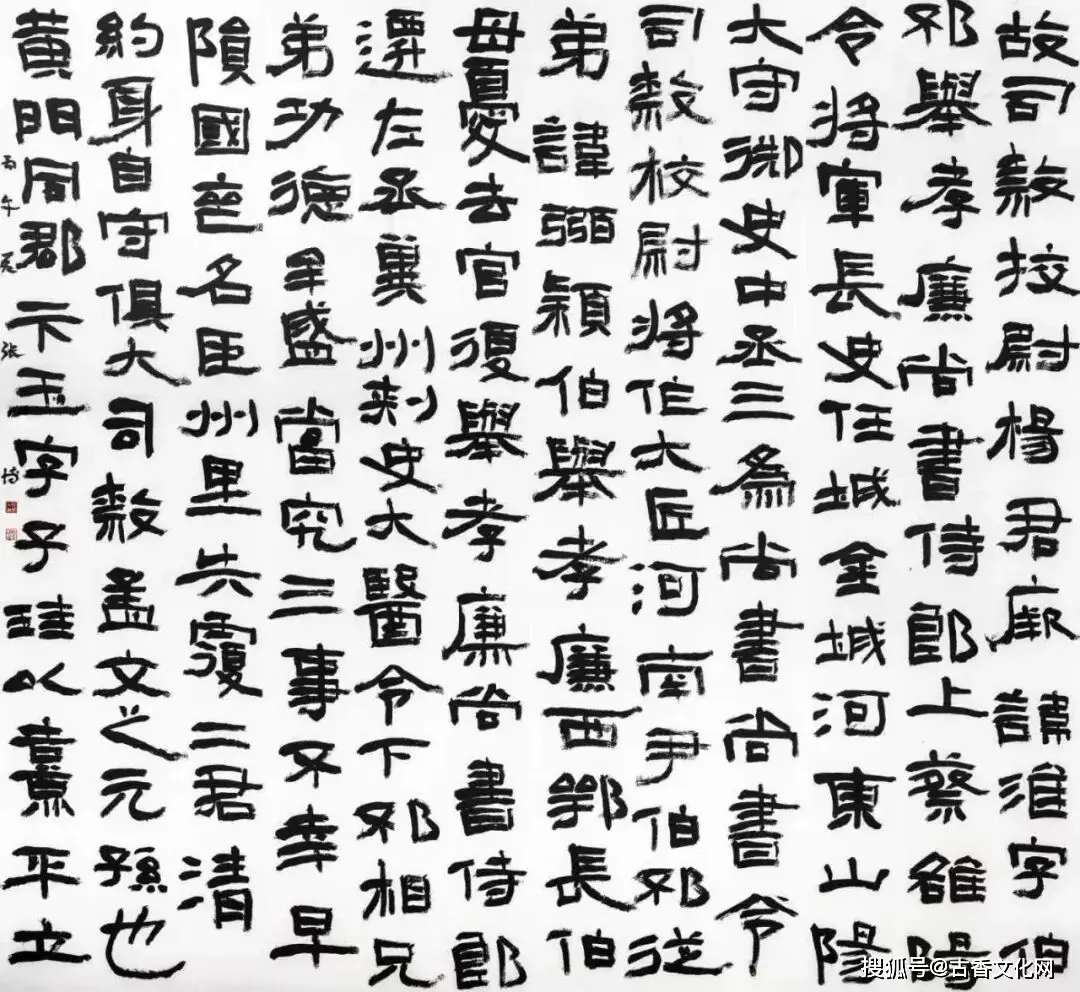 故司隸挍尉楊君厥諱淮字伯
邳舉孝廉尚書侍郎上蔡雒陽
令將軍長史任城金城河東山陽
大守御史中丞三為尚書尚書令
司隸校尉將作大匠河南尹伯邳從
弟諱弼穎伯舉孝廉西鄂長伯
母憂去官復舉孝廉尚書侍郎
遷左丞冀州刺史大醫令下邳相兄
弟功德牟盛當究三事不幸早
隕國喪名臣州里失覆二君清
約身自守俱大司隸孟文之元孫也
黃門同郡卞玉字子珪以熹平立
丙午夏張
搜狐号@古香文化网